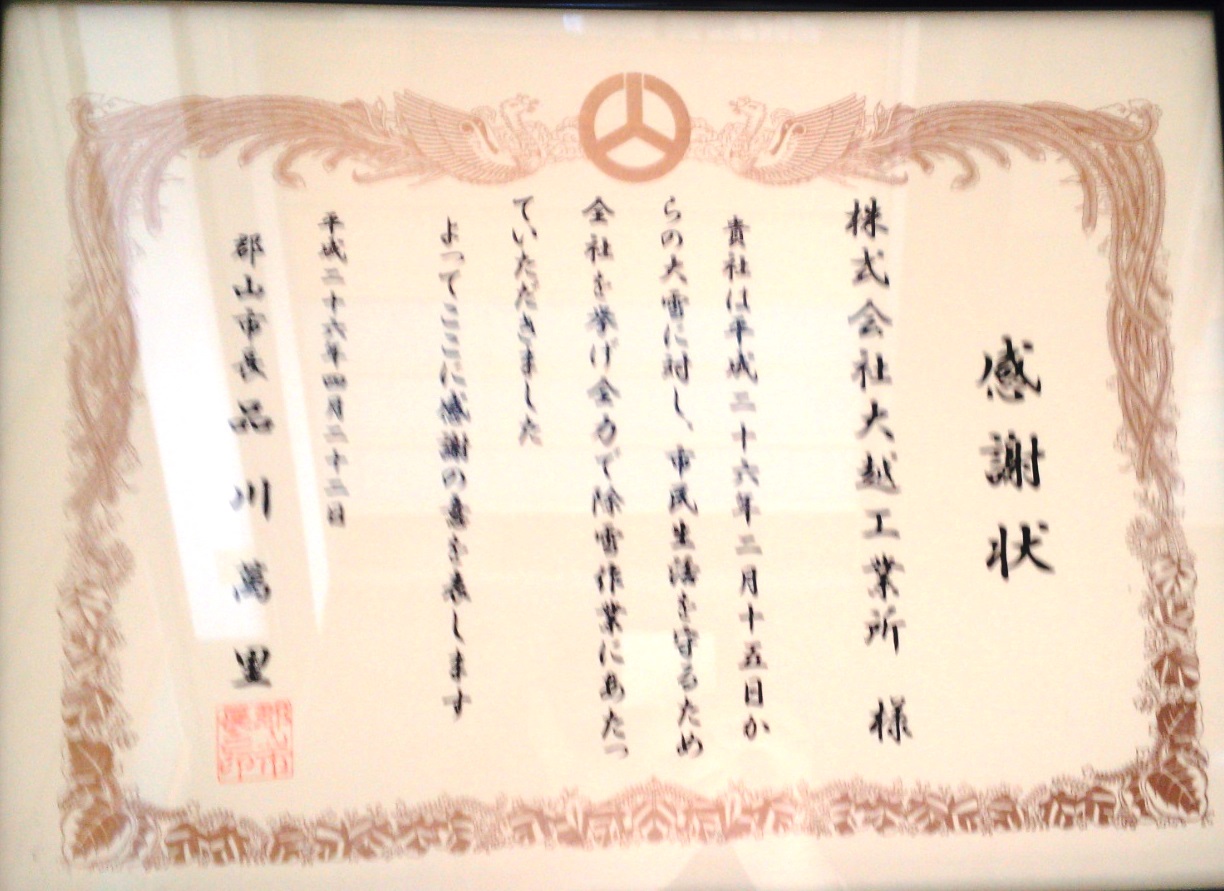 感謝状
株式会社大越工業所 様
貴社は平成二十六年二月十五日か
らの大雪に対し、市民生活を守るため
全社を挙げ全力で除雪作業にあたっ
ていただきました
よってここに感謝の意を表します
平成二十六年四月二十二日
郡山市長 品川萬里